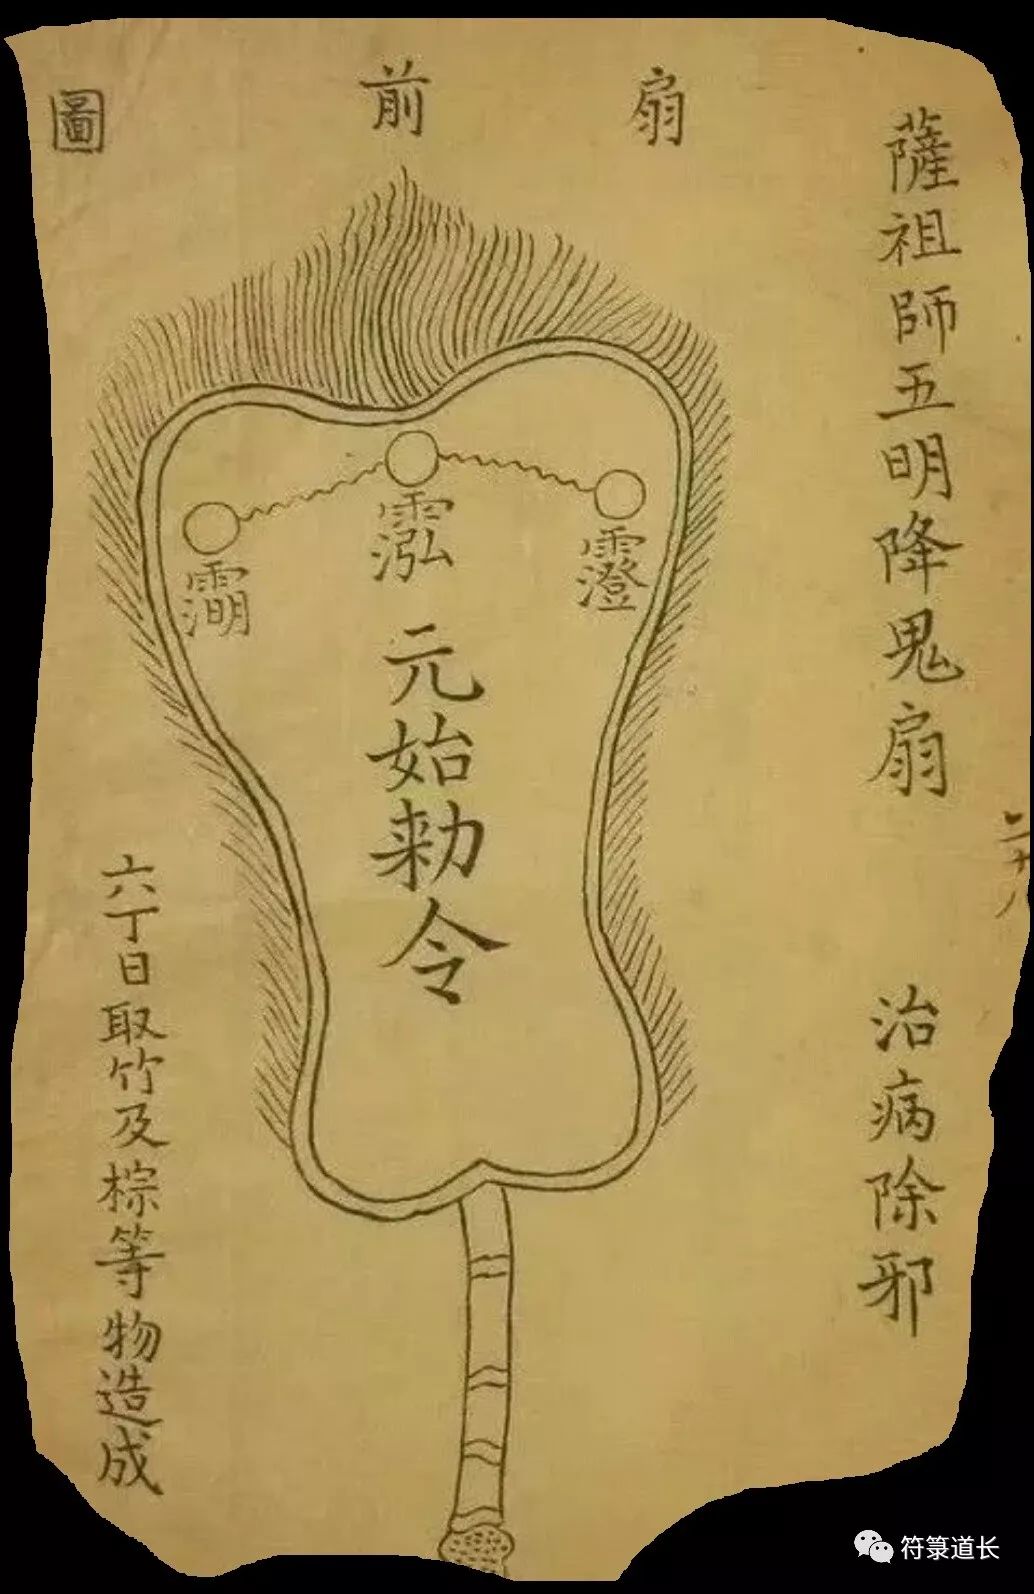 薩祖師五明降鬼扇　治病除邪
二十八
扇前圖
霐
元始勅令
六丁日取竹及棕等物造成
符箓道长